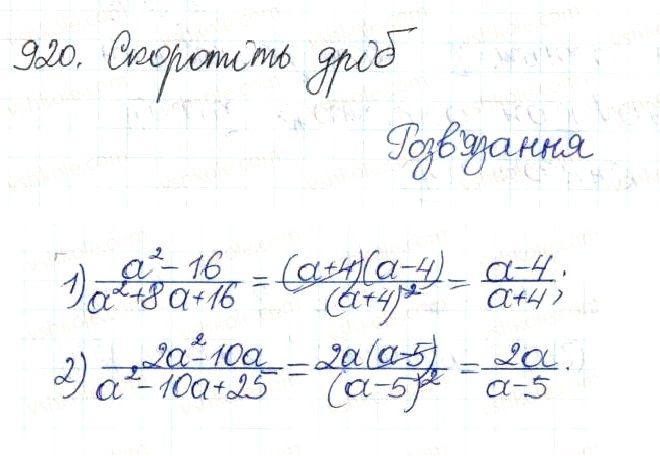 920. Скоротіть дріб
Розв'язання
1) \frac{a^2-16}{a^2+8a+16} = \frac{(a+4)(a-4)}{(a+4)^2} = \frac{a-4}{a+4};
2) \frac{2a^2-10a}{a^2-10a+25} = \frac{2a(a-5)}{(a-5)^2} = \frac{2a}{a-5}.